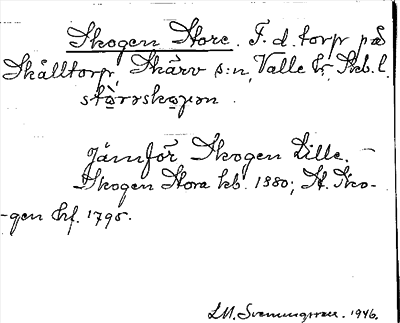 Skogen Store. F. d. torp på
Skålltorp, Skärv s:n, Valle hd, Skb. l.
stòrəskogən.
Jämför Skogen Lille.
Skogen Stora kb. 1880; St. Sko-
-gen hf. 1795.
L.M. Svenungsson. 1946.